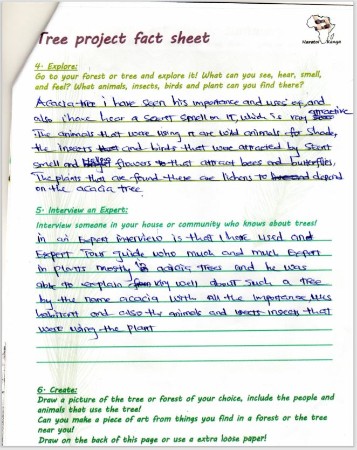 Tree project fact sheet
4- Explore:
Go to your forest or tree and explore it! What can you see, hear, smell,
and feel? What animals, insects, birds and plant can you find there?
Acacia tree i have seen his importance and uses of, and
also i have hear a scent smell on it, which is very attractive
The animals that were using it are wild animals for shade,
the insects and birds that were attracted by scent
smell and flowers that attract bees and butterflies.
The plants that are found there are lichens to depend
on the acacia tree
5- Interview an Expert:
Interview someone in your house or community who knows about trees!
in an Expert interview is that i have used and
Expert Tour guide who much and much Expert
in plants mostly acacia trees and he was
able to explain very well about such a tree
by the name acacia with all the importance, uses
habitant and also the animals and insects that
were using the plant
6- Create:
Draw a picture of the tree or forest of your choice, include the people and
animals that use the tree!
Can you make a piece of art from things you find in a forest or the tree
near you!
Draw on the back of this page or use a extra loose paper!